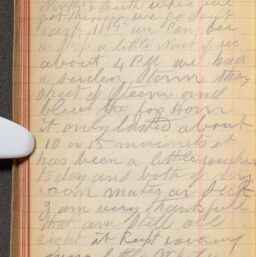 we go dont
east 11 15 we can see
a ship a little North of us
about 4 PM we had
a suden storm they
shut of steem and
blew the fog Horn
it only lasted about
10 or 15 minuets it
has been a little rougher
to day and both of my
room mates ar sick
I am very thankfull
that am still all
right it kept raining